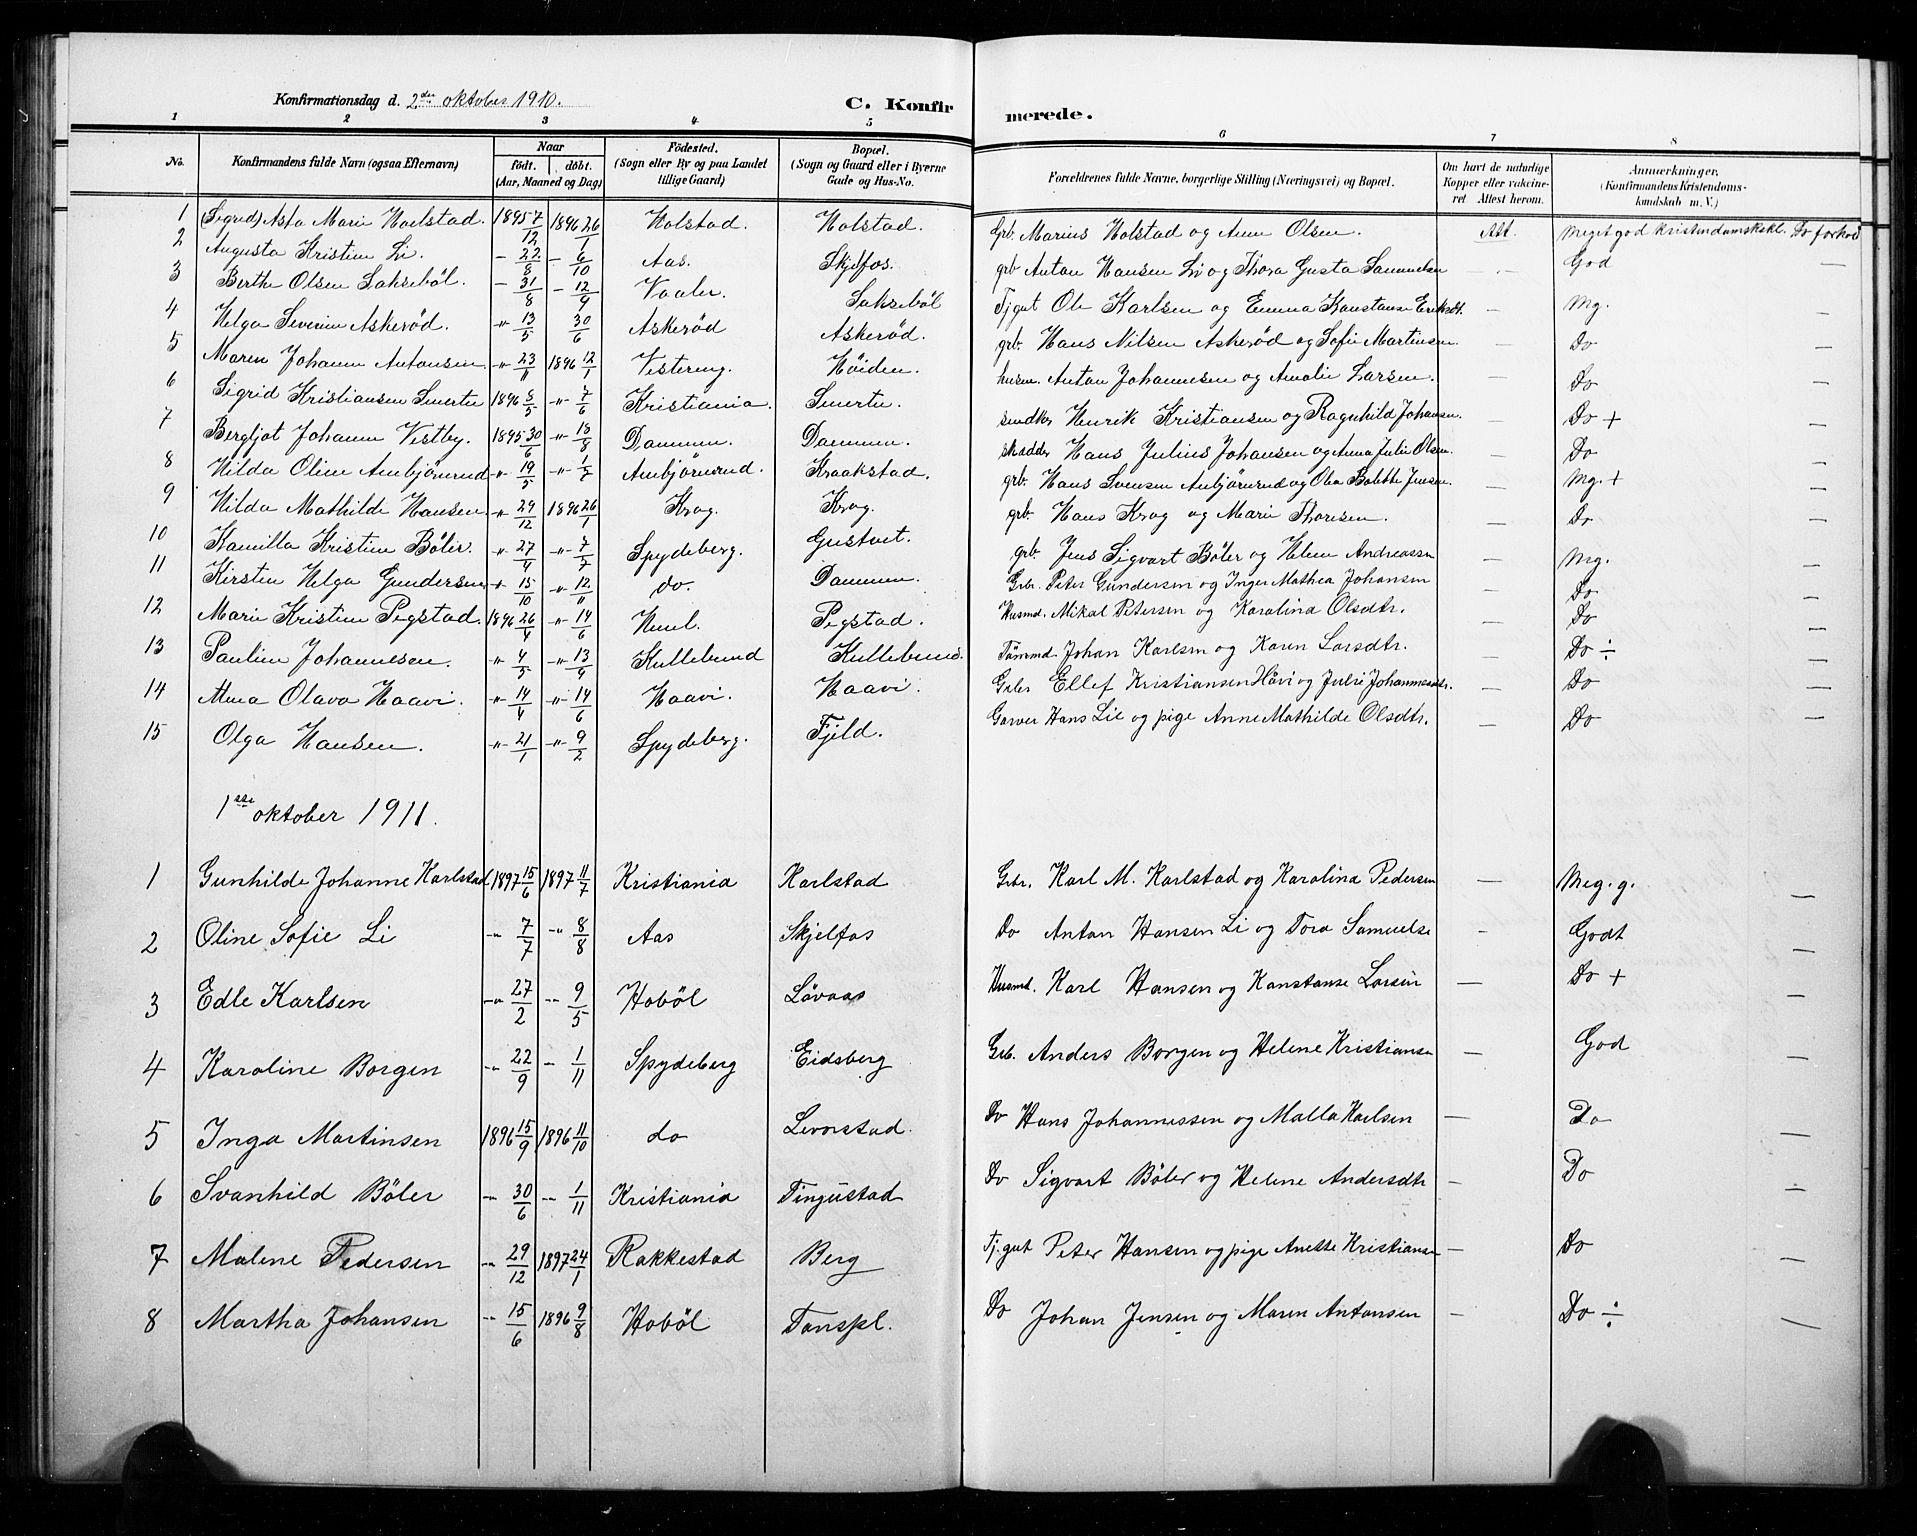 Konfirmationsdag d. 2den oktober 1910. C. Konfirmerede.
1 2 3 4 5 6 7 8
No. Konfirmandens fulde Navn (ogsaa Efternavn) Naar födt. döbt. (Aar, Maaned og Dag) Födested. (Sogn eller By og paa Landet tillige Gaard) Bopæl. (Sogn og Gaard eller i Byerne Gade og Hus-No. Forældrenes fulde Navne, borgerlige Stilling (Næringsvei) og Bopæl. Om havt de naturlige Kopper eller vakcineret Attest herom. Anmærkninger, (Konfirmandens Kristendomskundskab m. V.)
1 (Sigrid) Asta Marie Holstad. 1895 7/12 1896 26/1 Holstad. Holstad. Grb. Marius Holstad og Anne Olsen. Att. Meget god kristendomskskl. Do forhod
2 Augusta Kristine Li. - 22/8 - 6/10 Aas. Skjelfos. grb Anton Hansen Li og Thora Gusta Samuelsen - God -
3 Berthe Olsen Saksebøl. - 31/8 - 12/9 Vaaler. Saksebøl Tj gut Ole Karlsen og Emma Konstanse Eriksdt. - Mg. -
4 Helga Severine Askerød. -"- 13/5 30/6 Askerød Askerød. grb. Hans Nilsen Askerød og Sofie Martinsen. - Do -
5 Maren Johanne Antonsen -"- 23/11 1896 12/1 Vestereng. Høiden. husm. Anton Johannesen og Amalie Larsen. - Do -
6 Sigrid Kristiansen Smertu 1896 5/5 -"- 7/6 Kristiania. Smertu. smdker Henrik Kristiansen og Ragnhild Johansen. - Do + -
7 Bergljot Johanne Vestby. 1895 30/6 -"- 18/8 Dammen. Dammen. skrædder Hans Julius Johansen og Anna Julie Olsen. - Do -
8 Hilda Oline Anbjørnrud -"- 19/5 -"- 1/7 Anbjørnrud. Kraakstad. grb. Hans Svensen Anbjørnrud og Ola Bolette Jensen. - Mg. + -
9 Hilda Mathilde Hansen. -"- 29/12 1896 26/1 Krog. Krog. grb. Hans Krog og Marie Thoresen. - Do -
10 Kamilla Kristine Bøler. -"- 27/4 -"- 7/7 Spydeberg. Gustvet. grb Jens Sigvart Bøler og Helene Andreassen - Mg. -
11 Kirsten Helga Gundersen -"- 15/10 -"- 12/11 do. Dammen. Grbr. Peter Gundersen og Inger Mathea Johansen - Do -
12 Marie Kristine Pegstad. 1896 26/4 -"- 14/6 Heml. Pegstad. Husmd. Mikal Petersen og Karolina Olsdtr. - Do -
13 Pauline Johannesen. -"- 4/5 -"- 13/9 Kullebund Kullebund. Tømmd. Johan Karlsen og Karen Larsdtr. - Do ÷ -
14 Alma Olava Haavi. -"- 14/4 -"- 14/6 Haavi. Haavi. Grbr Ellef Kristiansen Håvi og Julie Johannesdtr. - Do -
15 Olga Hansen. -"- 21/1 -"- 9/2 Spydeberg. Fjeld. Garver Hans Lie og pige Anne Mathilde Olsdtr. - Do -
1ste oktober 1911.
1 Gunhilde Johanne Karlstad 1897 15/6 1897 11/7 Kristiania Karlstad Grbr. Karl M. Karlstad og Karolina Pedersen - Meg. g. -
2 Oline Sofie Li -"- 7/7 -"- 8/8 Aas Skjelfos Do Anton Hansen Li og Tora Samuelse - Godt -
3 Edle Karlsen -"- 27/2 -"- 9/5 Hobøl Løvaas Husmd. Karl Hansen og Konstanse Larsen - Do + -
4 Karoline Borgen -"- 22/9 - 1/11 Spydeberg Eidsberg Grb. Anders Borgen og Helene Kristianse - God -
5 Inga Martinsen 1896 15/9 1896 11/10 do Levorstad. Do Hans Johannessen og Malla Karlsen - Do -
6 Svanhild Bøler -"- 30/6 -"- 1/11 Kristiania Tingustad Do Sigvart Bøler og Helene Andersdtr - Do -
7 Malene Pedersen -"- 29/12 1897 24/1 Rakkestad Berg Tj. gut Peter Hansen og pige Anette Kristianse - Do -
8 Martha Johansen -"- 15/6 1896 9/8 Hobøl Tanspl. Do Johan Jensen og Maren Antonsen - Do ÷ -